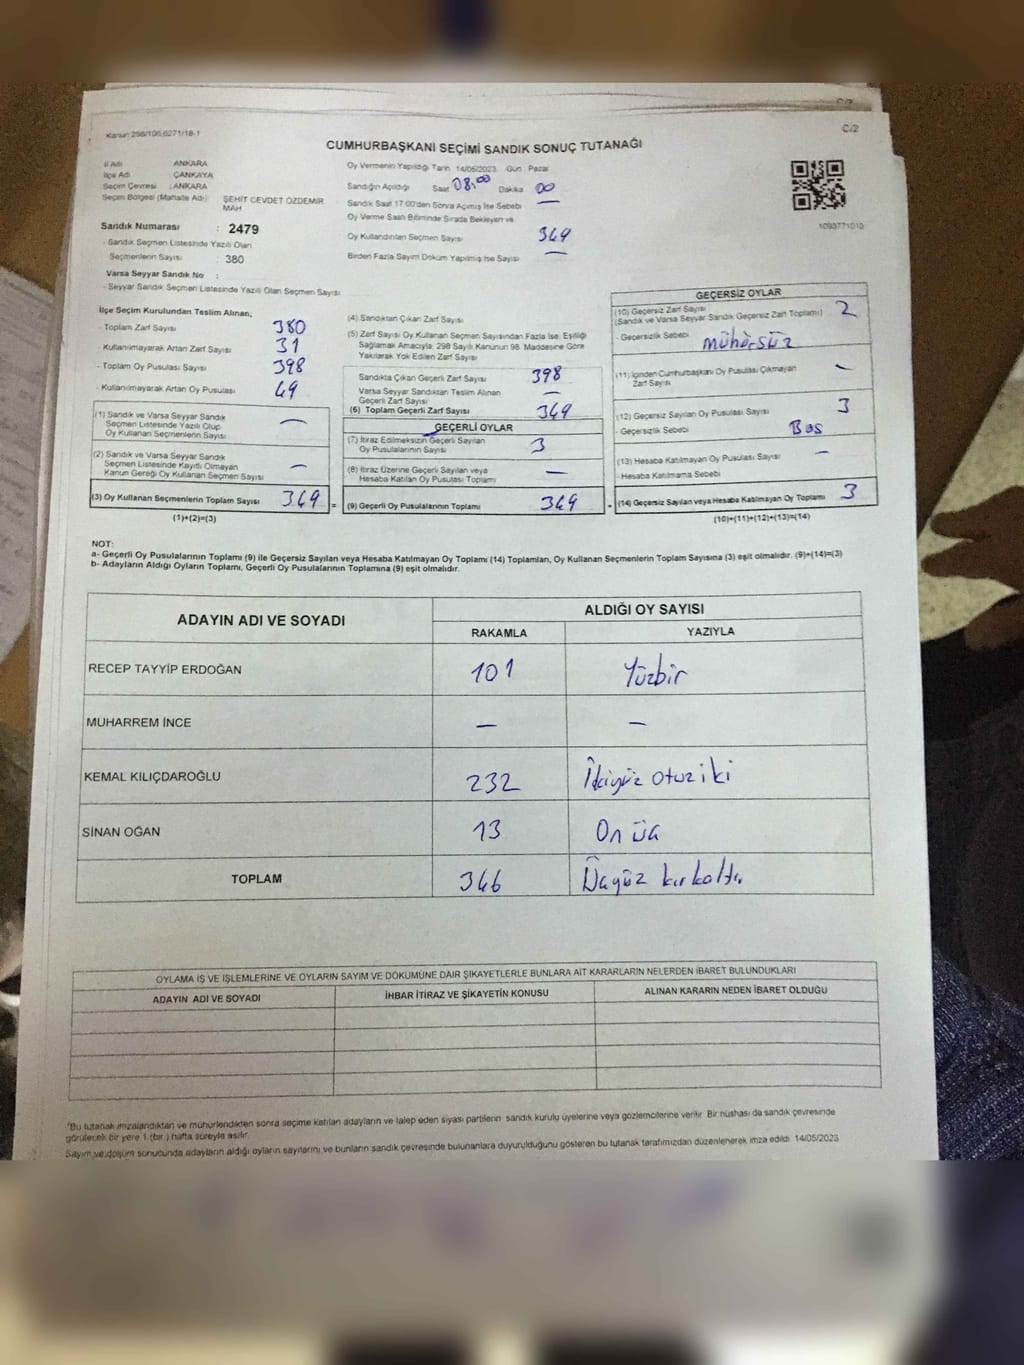 C/2
Kanun: 298/106,6271/18-1
CUMHURBAŞKANI SEÇİMİ SANDIK SONUÇ TUTANAĞI
İl Adı : ANKARA
İlçe Adı : ÇANKAYA
Seçim Çevresi : ANKARA
Seçim Bölgesi (Mahalle Adı) : ŞEHİT CEVDET ÖZDEMİR MAH
Sandık Numarası : 2479
- Sandık Seçmen Listesinde Yazılı Olan
Seçmenlerin Sayısı : 380
Varsa Seyyar Sandık No :
- Seyyar Sandık Seçmen Listesinde Yazılı Olan Seçmen Sayısı
Oy Vermenin Yapıldığı Tarih 14/05/2023 Gün : Pazar
Sandığın Açıldığı Saat 08:00 Dakika 00
Sandık Saat 17:00'den Sonra Açılmış İse Sebebi —
Oy Verme Saati Bitiminde Sırada Bekleyen ve
Oy Kullandırılan Seçmen Sayısı 349
Birden Fazla Sayım Döküm Yapılmış İse Sayısı —
1093771010
İlçe Seçim Kurulundan Teslim Alınan;
- Toplam Zarf Sayısı 380
- Kullanılmayarak Artan Zarf Sayısı 31
- Toplam Oy Pusulası Sayısı 398
- Kullanılmayarak Artan Oy Pusulası 49
(1) Sandık ve Varsa Seyyar Sandık
Seçmen Listesinde Yazılı Olup
Oy Kullanan Seçmenlerin Sayısı —
(2) Sandık ve Varsa Seyyar Sandık
Seçmen Listesinde Kayıtlı Olmayan
Kanun Gereği Oy Kullanan Seçmen Sayısı —
(3) Oy Kullanan Seçmenlerin Toplam Sayısı 349
(1)+(2)=(3)
(4) Sandıktan Çıkan Zarf Sayısı
(5) Zarf Sayısı Oy Kullanan Seçmen Sayısından Fazla İse, Eşitliği
Sağlamak Amacıyla, 298 Sayılı Kanunun 98. Maddesine Göre
Yakılarak Yok Edilen Zarf Sayısı
Sandıkta Çıkan Geçerli Zarf Sayısı 398
Varsa Seyyar Sandıktan Teslim Alınan
Geçerli Zarf Sayısı —
(6) Toplam Geçerli Zarf Sayısı 349
GEÇERLİ OYLAR
(7) İtiraz Edilmeksizin Geçerli Sayılan
Oy Pusulalarının Sayısı 3
(8) İtiraz Üzerine Geçerli Sayılan veya
Hesaba Katılan Oy Pusulası Toplamı —
= (9) Geçerli Oy Pusulalarının Toplamı 349
GEÇERSİZ OYLAR
(10) Geçersiz Zarf Sayısı 2
(Sandık ve Varsa Seyyar Sandık Geçersiz Zarf Toplamı)
- Geçersizlik Sebebi mühürsüz
(11) İçinden Cumhurbaşkanı Oy Pusulası Çıkmayan
Zarf Sayısı —
(12) Geçersiz Sayılan Oy Pusulası Sayısı 3
- Geçersizlik Sebebi Boş
(13) Hesaba Katılmayan Oy Pusulası Sayısı —
- Hesaba Katılmama Sebebi
+ (14) Geçersiz Sayılan veya Hesaba Katılmayan Oy Toplamı 3
(10)+(11)+(12)+(13)=(14)
NOT:
a- Geçerli Oy Pusulalarının Toplamı (9) ile Geçersiz Sayılan veya Hesaba Katılmayan Oy Toplamı (14) Toplamları, Oy Kullanan Seçmenlerin Toplam Sayısına (3) eşit olmalıdır. (9)+(14)=(3)
b- Adayların Aldığı Oyların Toplamı, Geçerli Oy Pusulalarının Toplamına (9) eşit olmalıdır.
ADAYIN ADI VE SOYADI ALDIĞI OY SAYISI
RAKAMLA YAZIYLA
RECEP TAYYİP ERDOĞAN 101 Yüzbir
MUHARREM İNCE — —
KEMAL KILIÇDAROĞLU 232 İkiyüz otuz iki
SİNAN OĞAN 13 On üç
TOPLAM 346 Üçyüz kırkaltı
OYLAMA İŞ VE İŞLEMLERİNE VE OYLARIN SAYIM VE DÖKÜMÜNE DAİR ŞİKAYETLERLE BUNLARA AİT KARARLARIN NELERDEN İBARET BULUNDUKLARI
ADAYIN ADI VE SOYADI İHBAR İTİRAZ VE ŞİKAYETİN KONUSU ALINAN KARARIN NEDEN İBARET OLDUĞU
"Bu tutanak imzalandıktan ve mühürlendikten sonra seçime katılan adayların ve talep eden siyasi partilerin sandık kurulu üyelerine veya gözlemcilerine verilir. Bir nüshası da sandık çevresinde
görülecek bir yere 1 (bir ) hafta süreyle asılır.
Sayım ve döküm sonucunda adayların aldığı oyların sayılarını ve bunların sandık çevresinde bulunanlara duyurulduğunu gösteren bu tutanak tarafımızdan düzenlenerek imza edildi. 14/05/2023